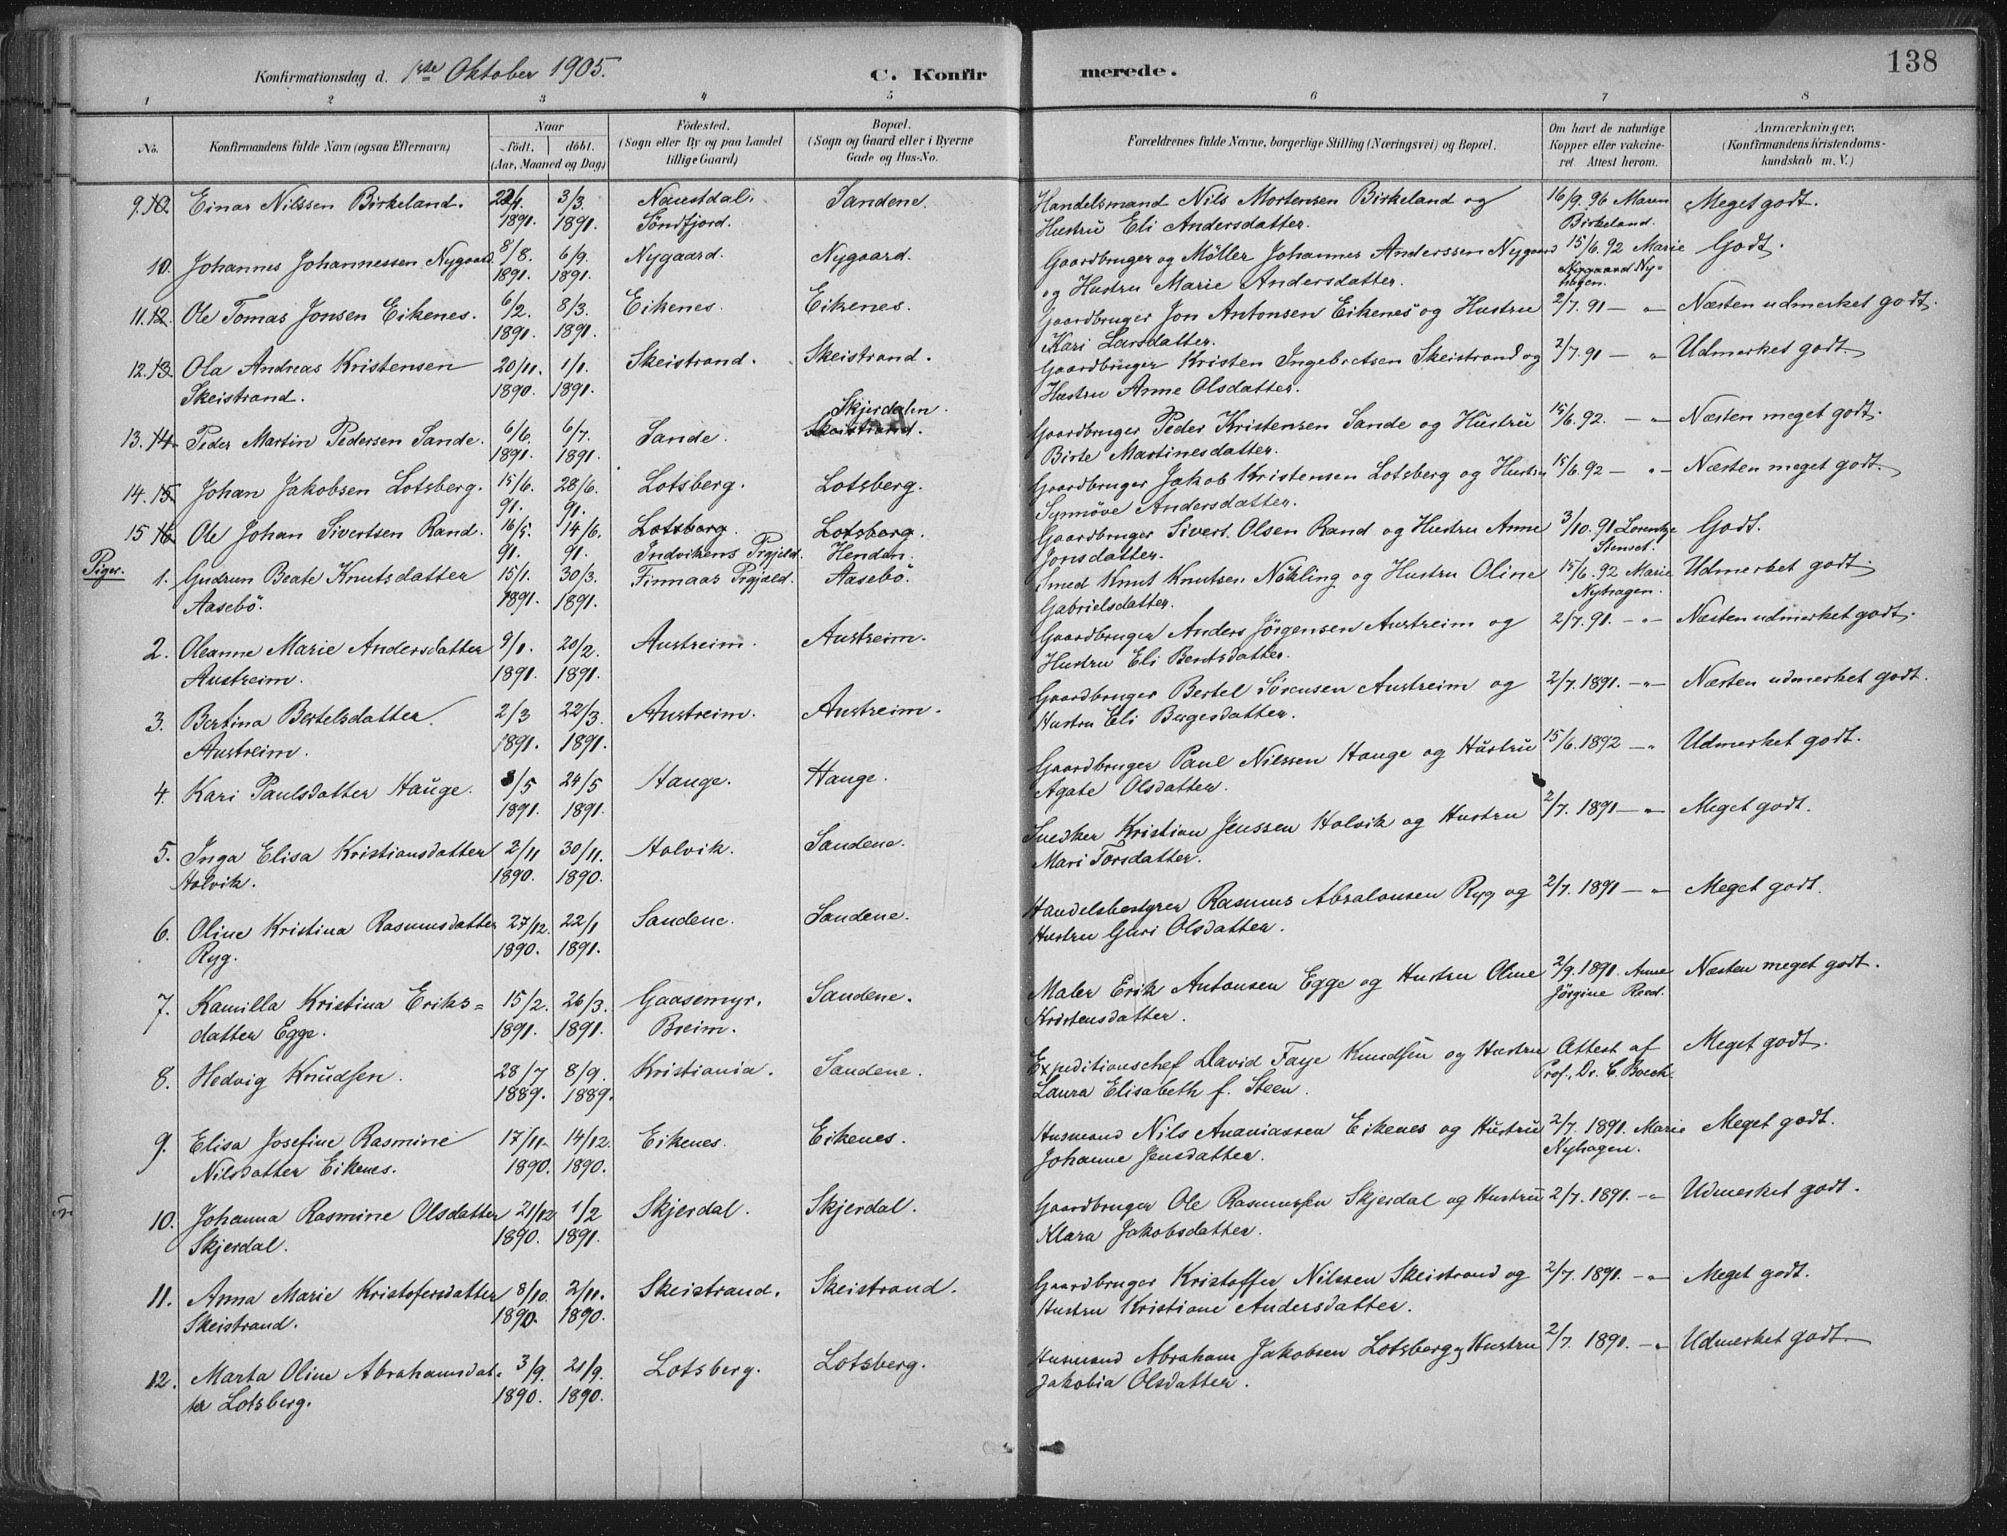 138
Konfirmationsdag d. 1ste Oktober 1905.
C. Konfirmerede.
1 2 3 4 5 6 7 8
No.
Konfirmandens fulde Navn (ogsaa Efternavn)
Naar
födt. döbt.
(Aar, Maaned og Dag)
Födested.
(Sogn eller By og paa Landet
tillige Gaard)
Bopæl.
(Sogn og Gaard eller i Byerne
Gade og Hus-No.
Forældrenes fulde Navne, borgerlige Stilling (Næringsvei) og Bopæl.
Om havt de naturlige
Kopper eller vakcine-
ret. Attest herom.
Anmærkninger.
(Konfirmandens Kristendoms-
kundskab m. V.)
9. 10. Einar Nilssen Birkeland. 3/3. Naustdal. Sandene. Handelsmand Nils Mortensen Birkeland og 16/9. 96 Maren Meget godt.
1891. 1891. Söndfjord. Hustru Eli Andersdatter. Birkeland.
10. Johannes Johannessen Nygaard. 8/8. 6/9. Nygaard. Nygaard. Gaardbruger og Möller Johannes Anderssen Nygaard 15/6. 92 Marie Godt.
1891. 1891. og Hustru Marie Andersdatter. Nygaard Ny-
hagen.
11. 12. Ole Tomas Jonsen Eikenes. 6/2. 8/3. Eikenes. Eikenes. Gaardbruger Jon Antonsen Eikenes og Hustru 2/7. 91 — " Næsten udmerket godt.
1891. 1891. Kari Larsdatter.
12. 13. Ola Andreas Kristensen 20/11. 1/1. Skeistrand. Skeistrand. Gaardbruger Kristen Ingebretsen Skeistrand og 2/7. 91 — " Udmerket godt.
Skeistrand. 1890. 1891. Hustru Anne Olsdatter.
Skjerdalen.
13. 14. Peder Martin Pedersen Sande. 6/6. 6/7. Sande. Skeistrand. Gaardbruger Peder Kristensen Sande og Hustru 15/6. 92. — " Næsten meget godt.
1891. 1891. Birte Martinesdatter.
14. 15. Johan Jakobsen Lotsberg. 15/6. 28/6. Lotsberg. Lotsberg. Gaardbruger Jakob Kristensen Lotsberg og Hustru 15/6. 92 — " Næsten meget godt.
91. 91. Synnöve Andersdatter.
15 16. Ole Johan Sivertsen Rand. 16/5. 14/6. Lotsberg. Lotsberg. Gaardbruger Sivert Olsen Rand og Hustru Anne 3/10. 91 Lorentze Godt.
91. 91. Indvikens Prgjeld. Henden. Jonsdatter.
Piger.
1. Gudrun Beate Knutsdatter 15/1. 30/3. Finnaas Prgjæld. Aasebö. Smed Knut Knutsen Nökling og Hustru Oline 15/6. 92 Marie Udmerket godt.
Aasebö. 1891. 1891. Gabrielsdatter. Nyhagen.
2. Oleanne Marie Andersdatter 9/1. 20/2. Austreim. Austreim. Gaardbruger Anders Jörgensen Austreim og 2/7. 91. — " — Næsten udmerket godt.
Austreim. 1891. 1891. Hustru Eli Bentsdatter.
3. Bertina Bertelsdatter. 2/3 22/3. Austreim. Austreim. Gaardbruger Bertel Sörensen Austreim og 2/7. 1891. — " — Næsten udmerket godt.
Austreim. 1891. 1891. Hustru Eli Børgesdatter.
4. Kari Paulsdatter Hauge. 3/5 24/5 Hauge. Hauge. Gaardbruger Paul Nilssen Hauge og Hustru 15/6. 1892 — " Udmerket godt.
1891. 1891. Agate Olsdatter.
5. Inga Elisa Kristiansdatter 2/11 30/11. Holvik. Sandene. Snedker Kristian Jenssen Holvik og Hustru 2/7. 1891 — " Meget godt.
Holvik. 1890. 1890. Mari Torsdatter.
6. Oline Kristina Rasmusdatter 27/12. 22/1 Sandene. Sandene. Handelsbestyrer Rasmus Absalonsen Ryg og 2/7. 1891 — " Meget godt.
Ryg. 1890. 1891. Hustru Guri Olsdatter.
7. Kamilla Kristina Eriks= 15/2. 26/3. Gaasemyr. Sandene. Maler Erik Antonsen Egge og Hustru Oline 2/9. 1891. Anne Næsten meget godt.
datter Egge. 1891. 1891. Breim. Kristensdatter. Jörgine Reed.
8. Hedvig Knudsen. 28/7 8/9. Kristiania. Sandene. Expeditionschef David Faye Knudsen og Hustru Attest af Meget godt.
1889. 1889. Laura Elisabeth f. Steen. Prof. Dr. C. Boeck.
9. Elisa Josefine Rasmine 17/11. 14/12. Eikenes. Eikenes. Husmand Nils Ananiassen Eikenes og Hustru 2/7. 1891. Marie Meget godt.
Nilsdatter Eikenes. 1890. 1890. Johanne Jensdatter. Nyhagen.
10. Johanna Rasmine Olsdatter 21/12 1/2 Skjerdal. Skjerdal. Gaardbruger Ole Rasmussen Skjerdal og Hustru 2/7. 1891. — " Udmerket godt.
Skjerdal. 1890. 1891. Klara Jakobsdatter.
11. Anna Marie Kristofersdatter 8/10. 2/11. Skeistrand. Skeistrand. Gaardbruger Kristoffer Nilssen Skeistrand og 2/7. 1891. — " Meget godt.
Skeistrand. 1890. 1890. Hustru Kristiane Andersdatter.
12. Marta Oline Abrahamsdat- 3/9. 21/9. Lotsberg. Lotsberg. Husmand Abraham Jakobsen Lotsberg og Hustru 2/7. 1890. — " Udmerket godt.
ter Lotsberg. 1890. 1890. Jakobia Olsdatter.